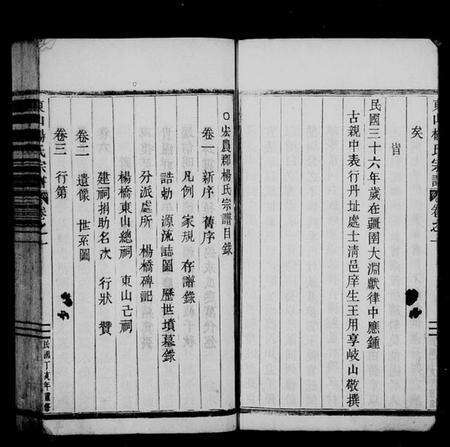 東山楊氏宗譜 卷之一
矣
旹
民國三十六年歲在疆圉大淵獻律中應鍾
古親中表行丹址處士清邑庠生王用享岐山敬撰
宏農郡楊氏宗譜目錄
卷一 新序 舊序
凡例 家規 存譜錄
誥勅 源流誌圖 歷世墳墓錄
分派處所 楊橋碑記
楊橋東山總祠 東山己祠
建祠捐助名次 行狀 贊
卷二 遺像 世系圖
卷三 行第
東山楊氏宗譜 卷之一
民國丁亥年重修